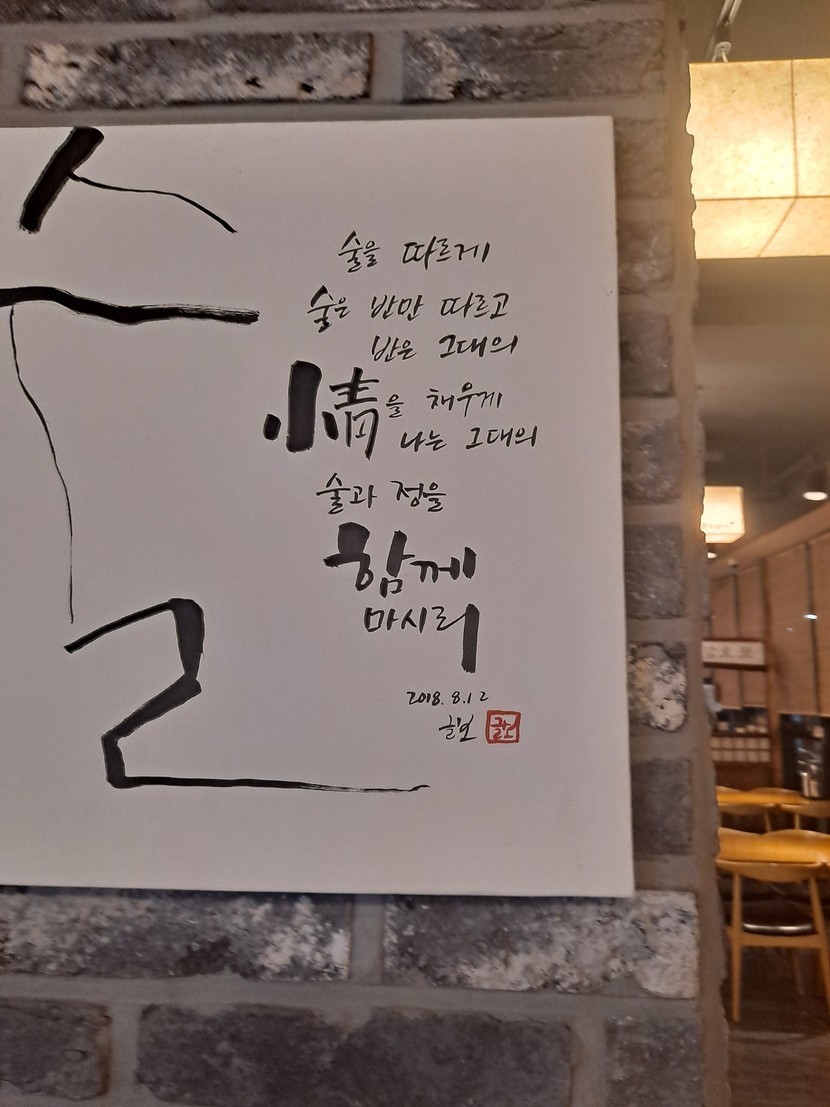 술
술을 따르게
술은 반만 따르고
반은 그대의
情을 채우게
나는 그대의
술과 정을
함께
마시리
2018. 8. 12